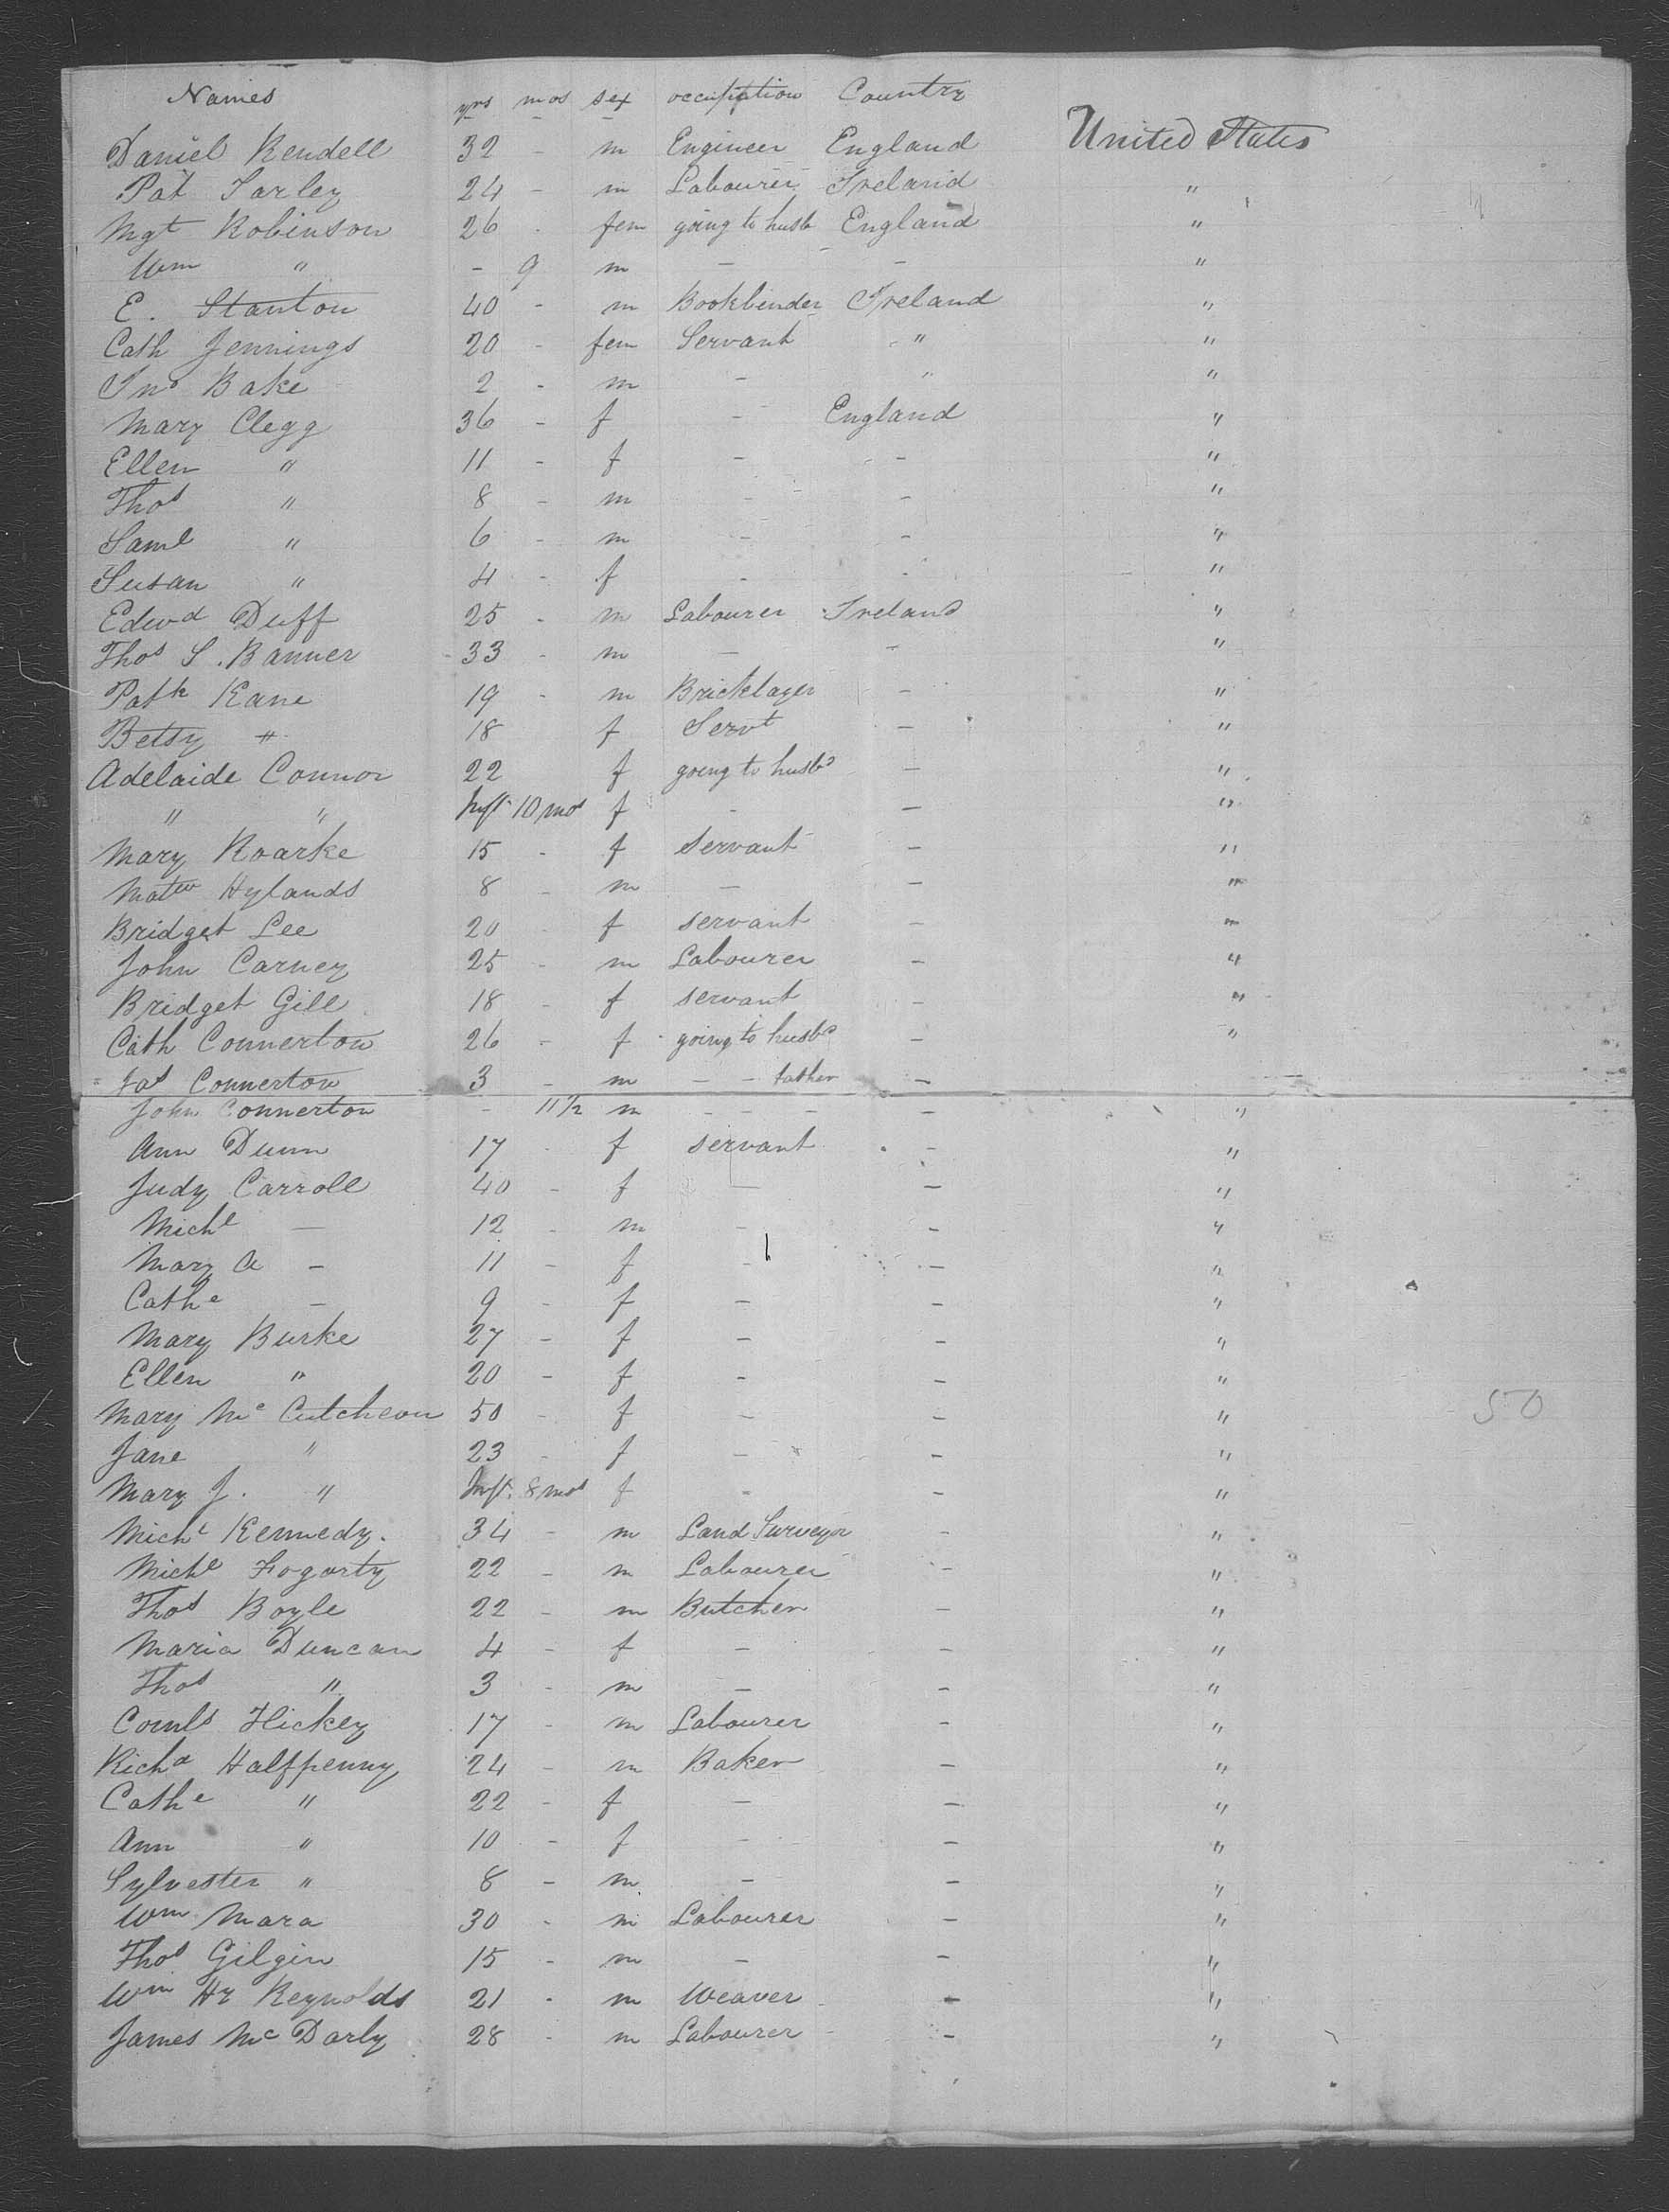 Names yrs mos sex occupation Country
Daniel Kendell 32 - m Engineer England United States
Pat Farley 24 - m Labourer Ireland "
Mgt Robinson 26 - fem going to husb England "
Wm " - 9 m - - "
E. Stanton 40 - m Bookbinder Ireland "
Cath Jennings 20 - fem Servant " "
Jno Bake 2 - m - " "
Mary Clegg 36 - f - England "
Ellen " 11 - f - - "
Thos " 8 - m - - "
Saml " 6 - m - - "
Susan " 4 - f - - "
Edwd Duff 25 - m Labourer Ireland "
Thos S. Banner 33 - m - - "
Patk Kane 19 - m Bricklayer - "
Betsy " 18 f Servt - "
Adelaide Connor 22 f going to husbd - "
" " Inft 10 mos f - - "
Mary Roarke 15 - f servant - "
Matw Hylands 8 - m - - "
Bridget Lee 20 - f servant - "
John Carney 25 - m Labourer - "
Bridget Gill 18 - f servant - "
Cath Connerton 26 - f going to husbd - "
Jas Connerton 3 - m - - father - -
John Connerton - 11½ m - - - - "
Ann Dunn 17 - f servant - "
Judy Carroll 40 - f - - "
Michl - 12 - m - - "
Mary A - 11 - f - - "
Cathe - 9 - f - - "
Mary Burke 27 - f - - "
Ellen " 20 - f - - "
Mary Mc Cutcheon 50 - f - - " 50
Jane " 23 - f - - "
Mary J. " Inft. 8 mos f - - "
Michl Kennedy. 34 - m Land Surveyor - "
Michl Fogarty 22 - m Labourer - "
Thos Boyle 22 - m Butcher - "
Maria Duncan 4 - f - - "
Thos " 3 - m - - "
Cornls Hickey 17 - m Labourer - "
Richd Halfpenny 24 - m Baker - "
Cathe " 22 - f - - "
Ann " 10 - f - - "
Sylvester " 8 - m - - "
Wm Mara 30 - m Labourer - "
Thos Gilgin 15 - m - - "
Wm Hy Reynolds 21 - m Weaver - "
James Mc Darly 28 - m Labourer - "